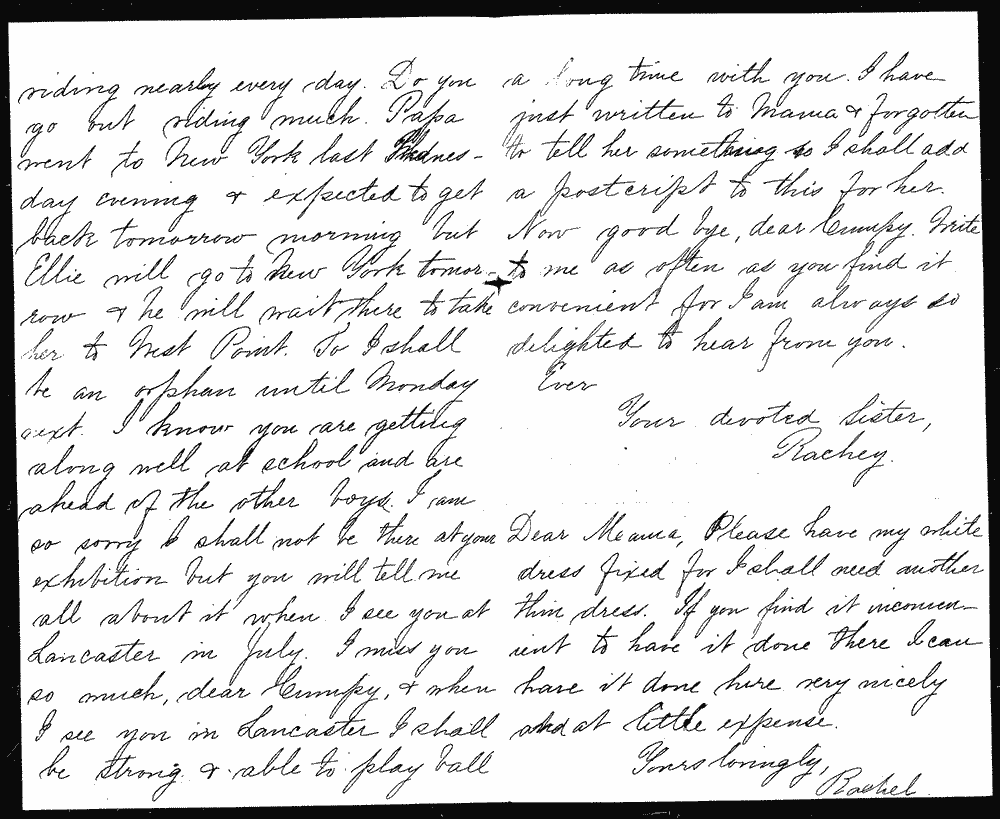 riding nearly every day. Do you
go out riding much. Papa
went to New York last Wednes-
day evening & expected to get
back tomorrow morning but
Ellie will go to New York tomor-
row & he will wait there to take
her to West Point. So I shall
be an orphan until Monday
next. I know you are getting
along well at school and are
ahead of the other boys. I am
so sorry I shall not be there at your
exhibition but you will tell me
all about it when I see you at
Lancaster in July. I miss you
so much, dear Cumpy, & when
I see you in Lancaster I shall
be strong & able to play ball
a long time with you. I have
just written to Mama & forgotten
to tell her something so I shall add
a postcript to this for her.
Now good bye, dear Cumpy. Write
to me as often as you find it
convenient for I am always so
delighted to hear from you.
Ever
Your devoted sister,
Rachey.
Dear Mama, Please have my white
dress fixed for I shall need another
thin dress. If you find it inconven-
ient to have it done there I can
have it done here very nicely
and at little expense.
Yours lovingly,
Rachel.